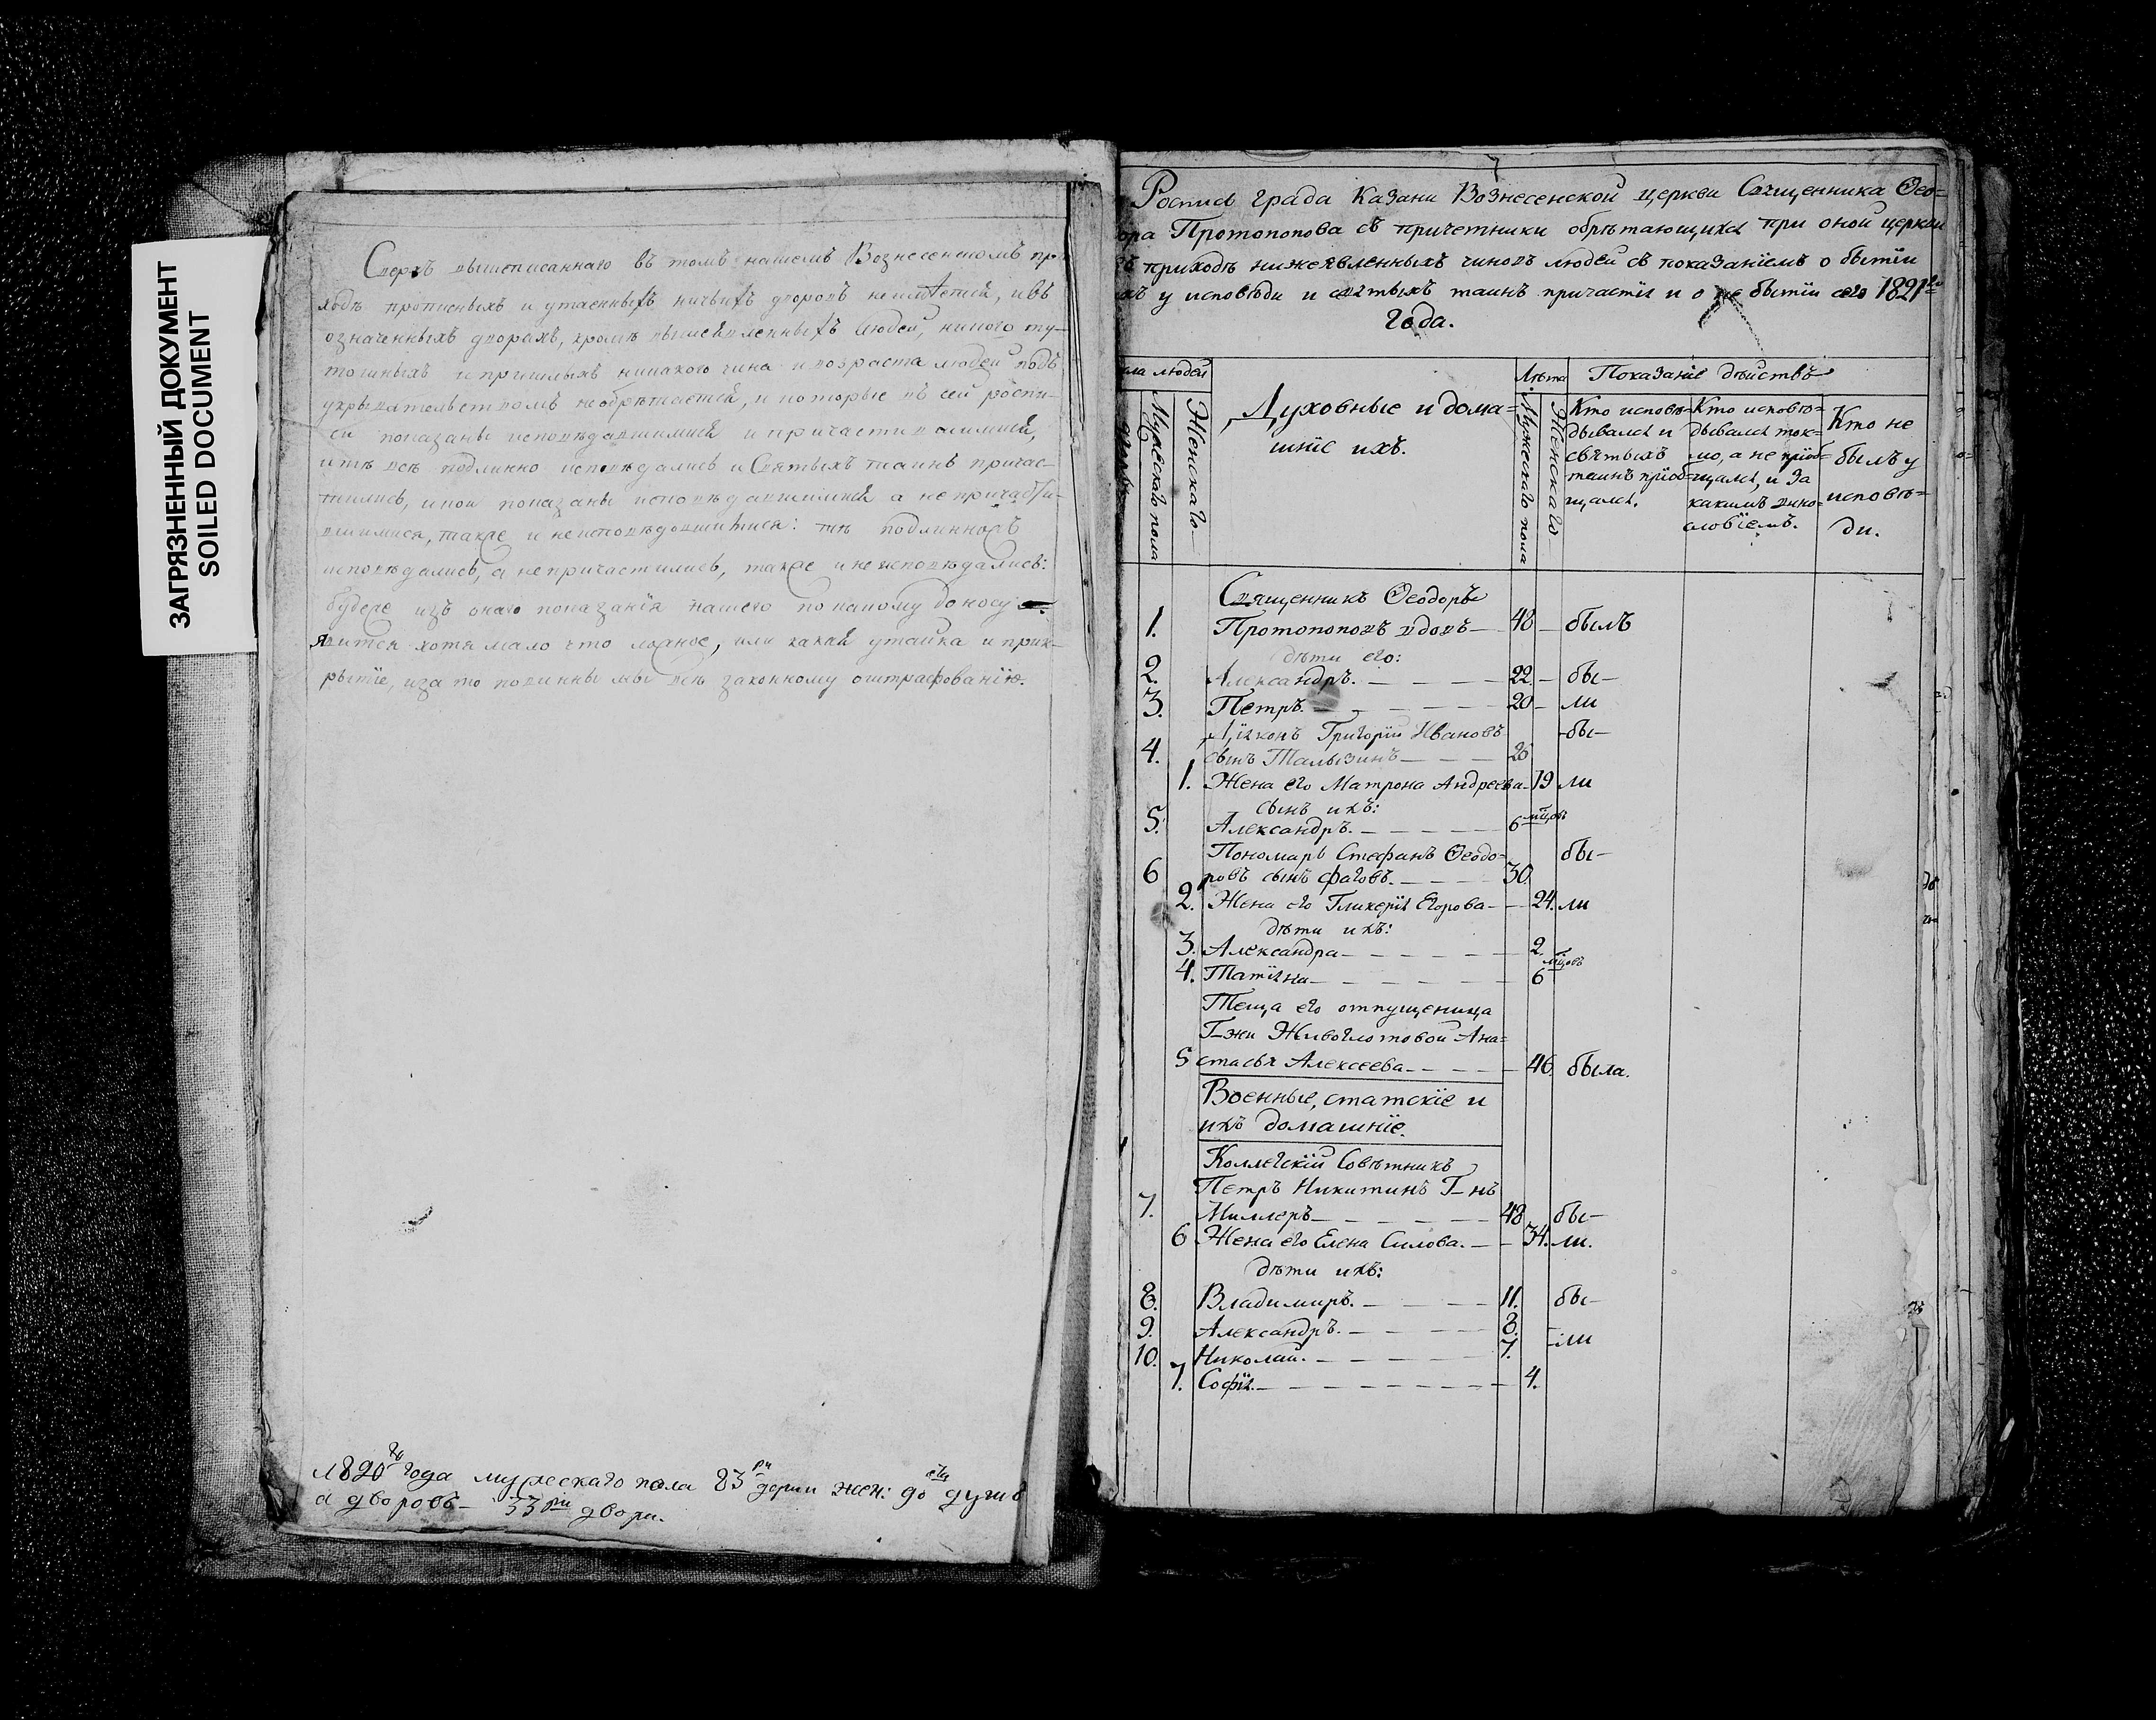 ЗАГРЯЗНЕННЫЙ ДОКУМЕНТ
SOILED DOCUMENT
Сверхъ вышеписаннаго въ томъ нашемъ Вознесенскомъ при
ходѣ прописныхъ и утаенныхъ ничьихъ дворовъ неимѣется, ивъ
означенныхъ дворахъ, кромѣ вышеявленныхъ людей, никого ту-
тошныхъ и пришлыхъ никакого чина и возраста людей подъ
укрывательствомъ необрѣтается, и которые въ сей роспи-
си показаны исповѣдавшимися и причастившимися,
итѣ всѣ подлинно исповѣдались и Святыхъ таинъ причас-
тились, икои показаны исповѣдавшимися а не причасти-
вшимися, также и неисповѣдовшимися: тѣ подлинно
исповѣдались, а непричастились, также и не исповѣдались:
будеже изъ онаго показанія нашего по какому доносу
явится хотя мало что ложное, или какая утайка и прик-
рытіе, иза то повинны мы всѣ законному оштрафованію.
1820го года мужескаго пола 83ри души жен: душъ
а дворовъ - 33ри двори.
Роспись града Казани Вознесенской церкви Священника Ѳео=
ора Протопопова съ причетники обрѣтающихся при оной церкви
въ приходѣ нижеявленныхъ чиновъ людей съ показаніемъ о бытіи
ихъ у исповѣди и святыхъ таинъ причастія и о не бытіи сего 1821го
года.
сла людей
Мужескаго пола
Женскаго
Духовные и дома=
шніе ихъ.
Лѣта
Мужескаго пола
Женскаго
Показаніе дѣйствъ
Кто исповѣ=
дывался и
святыхъ
таинъ пріоб=
щался.
Кто исповѣ=
дывался ток=
мо, а не пріоб=
щался, и за
какимъ вино=
словіемъ.
Кто не
былъ у
исповѣ=
ди.
Священникъ Ѳеодоръ
1. Протопоповъ вдовъ — 48 — былъ
дѣти его:
2. Александръ. — 22 — бы—
3. Петръ. — 20 — ли
Діяконъ Григорій Ивановъ бы—
4. сынъ Талызинъ — 26
1. Жена его Матрона Андреева — 19 ли
сынъ ихъ:
5. Александръ. — 6 мѣцовъ
Пономарь Стефанъ Ѳеодо= бы—
6 ровъ сынъ Фаговъ. — 30.
2. Жена его Гликерія Егорова — 24. ли
дѣти ихъ:
3. Александра — 2
4. Татіяна — 6 мѣцовъ
Теща его отпущеница
Г-жи Живоглотовой Ана=
5 стасья Алексеева — 46. была.
Военные, статскіе и
ихъ домашніе.
Коллегскій Совѣтникъ
Петръ Никитинъ Г-нъ
7. Миллеръ — 48 бы—
6 Жена его Елена Силова. — 34. ли.
дѣти ихъ:
8. Владимиръ. — 11. бы—
9. Александръ. — 8.
10. Николай. — 7. —ли
7. Софія. — 4.